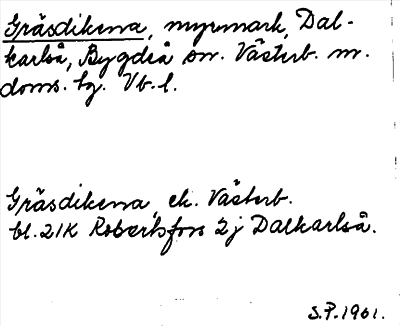 Gräsdikena, myrmark, Dal-
karlså, Bygdeå sn. Västerb. n.
doms. tg. Vb. l.
Gräsdikena, ek. Västerb.
bl. 21K Robertsfors 2j Dalkarlså.
S.P. 1961.